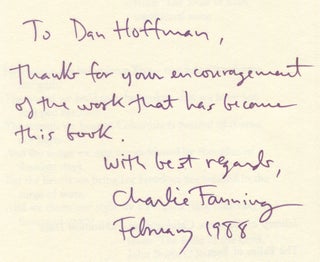 To Dan Hoffman,
Thanks for your encouragement
of the work that has become
this book.
with best regards,
Charlie Fanning
February 1988